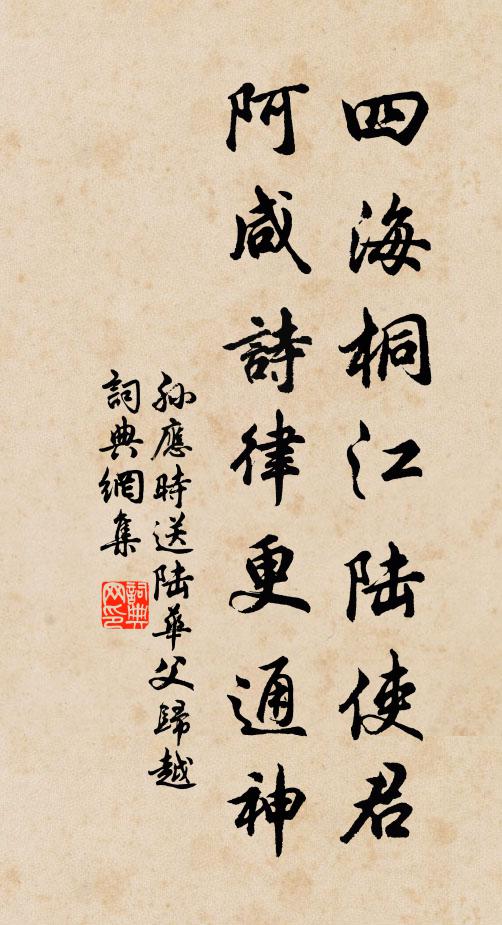 四海桐江陸使君
阿咸詩律更通神
孫應時送陸華父歸越
詞典網集
詞典
网印